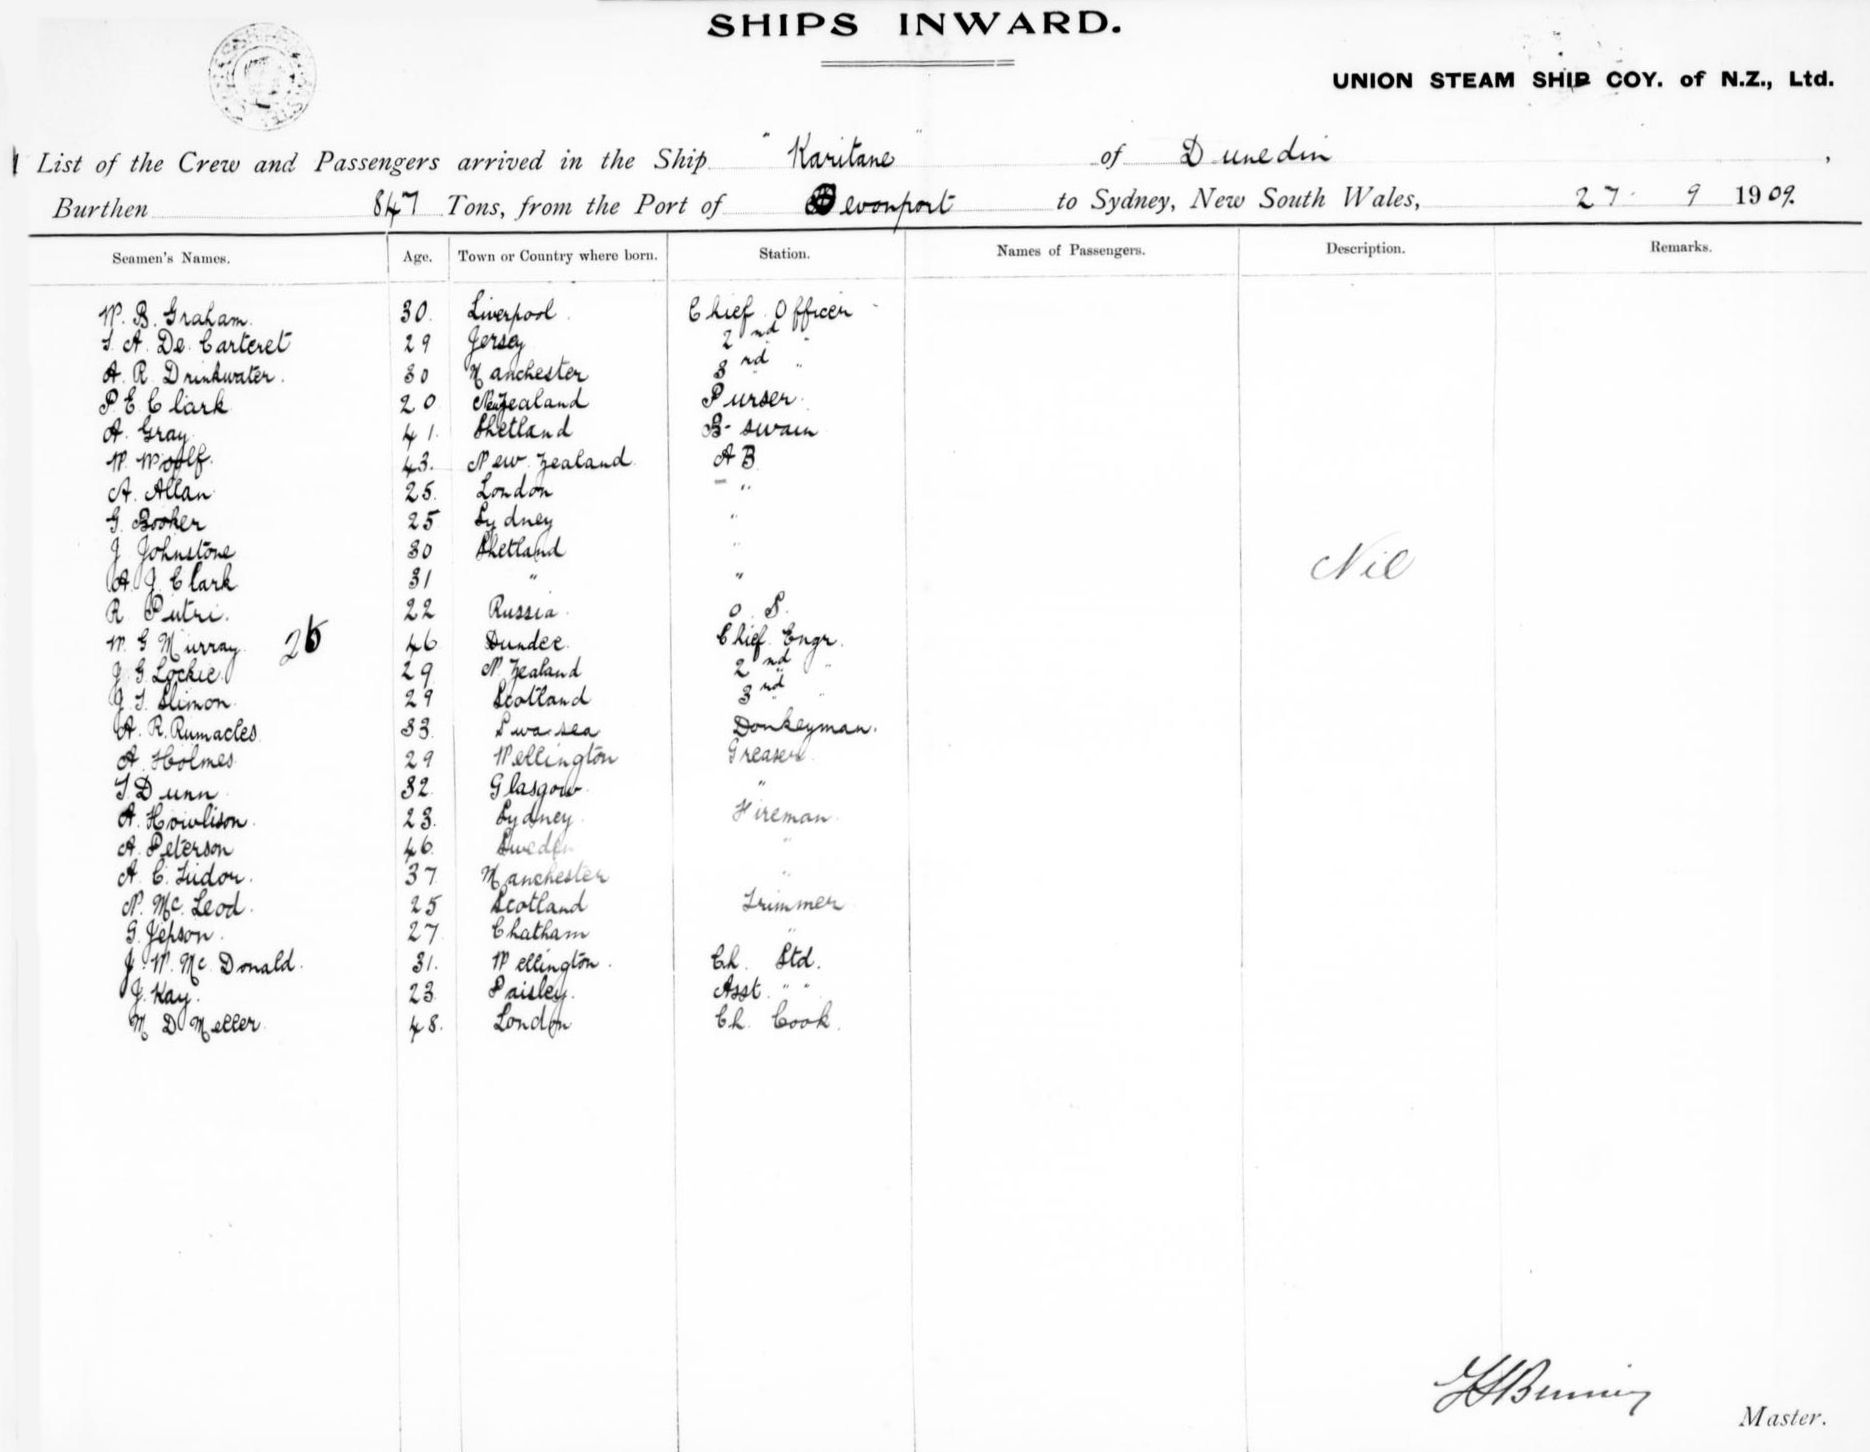 SHIPS INWARD.
UNION STEAM SHIP COY. of N.Z., Ltd.
List of the Crew and Passengers arrived in the Ship "Karitane" of Dunedin,
Burthen 847 Tons, from the Port of Devonport to Sydney, New South Wales, 27 9 1909.
Seamen's Names. Age. Town or Country where born. Station. Names of Passengers. Description. Remarks.
W. B. Graham. 30. Liverpool. Chief Officer
T. A. De Carteret 29 Jersey 2nd "
A. R. Drinkwater. 30 Manchester 3rd "
P. E. Clark 20 New Zealand Purser.
A. Gray 41. Shetland B-swain
W. Woolf. 43. New Zealand AB
A. Allan 25. London "
G. Booker 25 Sydney "
J Johnstone 30 Shetland "
A. J. Clark 31 " "
R. Putri. 22 Russia. O. S.
W. G Murray. 46 Dundee. Chief Engr.
J. G. Lockie. 29 N. Zealand 2nd "
J. T. Slimon. 29 Scotland 3rd "
A. R. Rumacles 33. Swasea Donkeyman.
A. Holmes 29 Wellington Greaser.
T. Dunn 32. Glasgow. "
A. Howlison. 23. Sydney Fireman.
A. Peterson 46. Sweden "
A. C. Tudor. 37 Manchester "
N. Mc. Leod. 25 Scotland Trimmer
G. Jepson. 27 Chatham "
J. W. Mc. Donald. 31. Wellington. Ch. Std.
J. Kay. 23 Paisley. Asst. " "
M D Meller 48. London Ch. Cook.
Nil
Master.